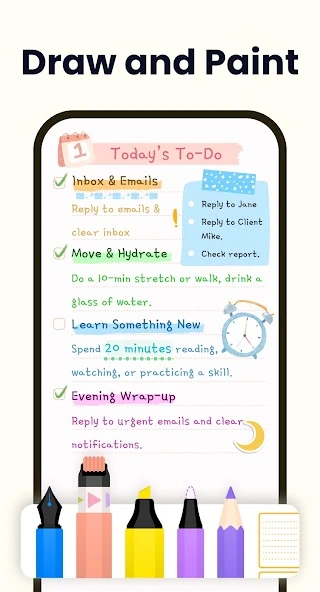 Draw and Paint
1
Today's To-Do
Inbox & Emails
Reply to emails &
clear inbox
Reply to Jane
Reply to Client
Mike.
Check report.
Move & Hydrate
Do a 10-min stretch or walk, drink a
glass of water.
Learn Something New
Spend 20 minutes reading,
watching, or practicing a skill.
Evening Wrap-up
Reply to urgent emails and clear
notifications.